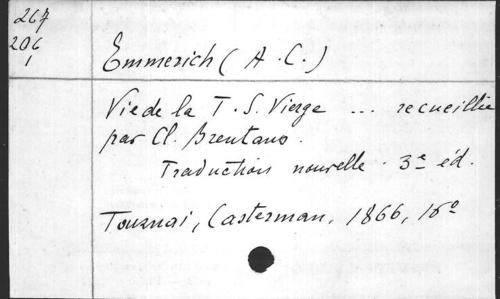 267
206
1
Emmerich (A.C.)
Vie de la T.S. Vierge ... recueillie
par Cl. Brentano.
Traduction nouvelle. 3e éd.
Tournai, Casterman, 1866, 16o